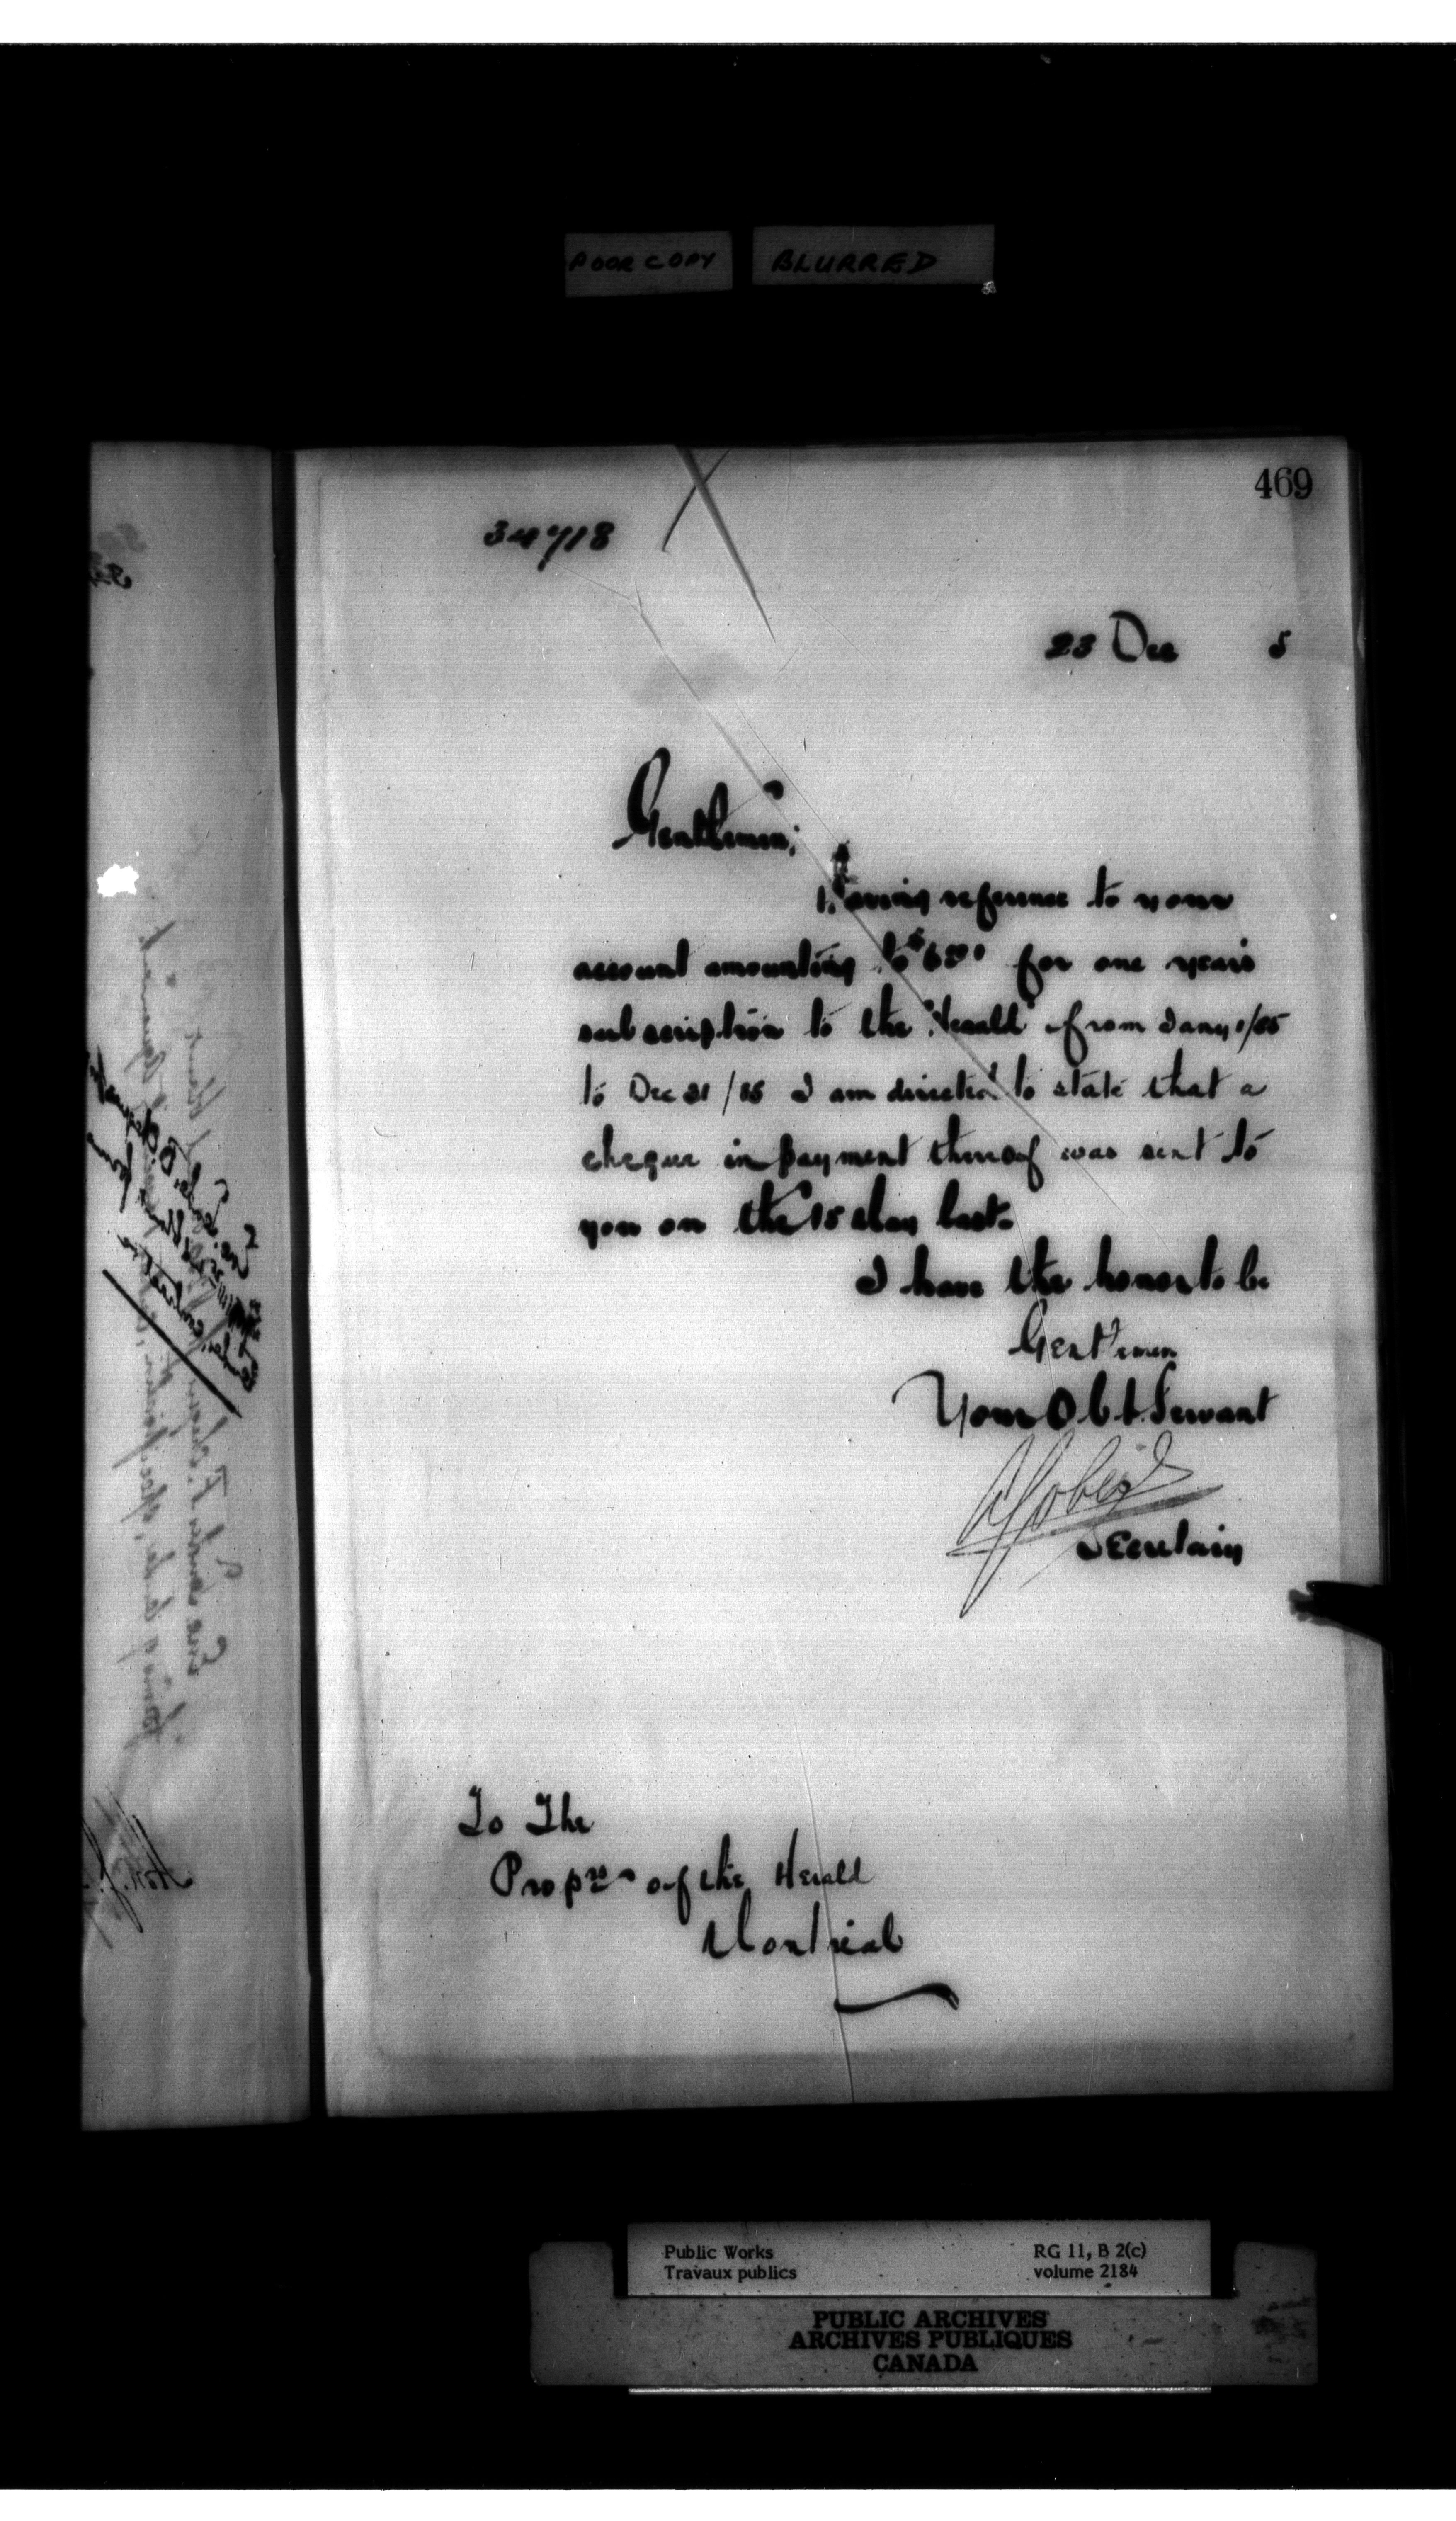 POOR COPY BLURRED
469
34718
23 Dec 5
Gentlemen;
Having reference to your
account amounting to $6.00 for one years
subscription to the "Herald" from Jany 1/85
to Dec 31/85 I am directed to state that a
cheque in payment thereof was sent to
you on the 15 May last.
I have the honor to be
Gentlemen
Your Obt. Servant
AGobeil
Secretary
To The
Proprs of the Herald
Montreal
Public Works
Travaux publics
RG 11, B 2(c)
volume 2184
PUBLIC ARCHIVES
ARCHIVES PUBLIQUES
CANADA